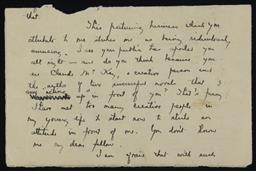 that.
This posturing business which you
attribute to me strikes me as being ridiculously
amusing. I see your public has spoiled you
all right — and do you think because you
are Claude McKay, a creative person and
the author of two successful novels that I
any action up in front of you? That's funny
I have met too many creative people in
my young life to start now to strike an
attitude in front of one. You don't know
me my dear fellow.
I am afraid that with such